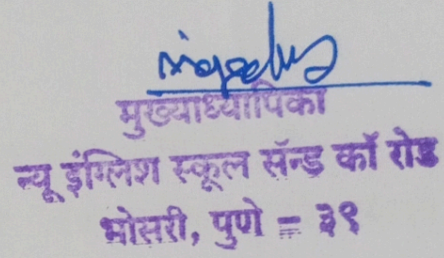 मुख्याध्यापिका
न्यू इंग्लिश स्कूल सॅन्ड कॉ रोड
भोसरी, पुणे = ३९